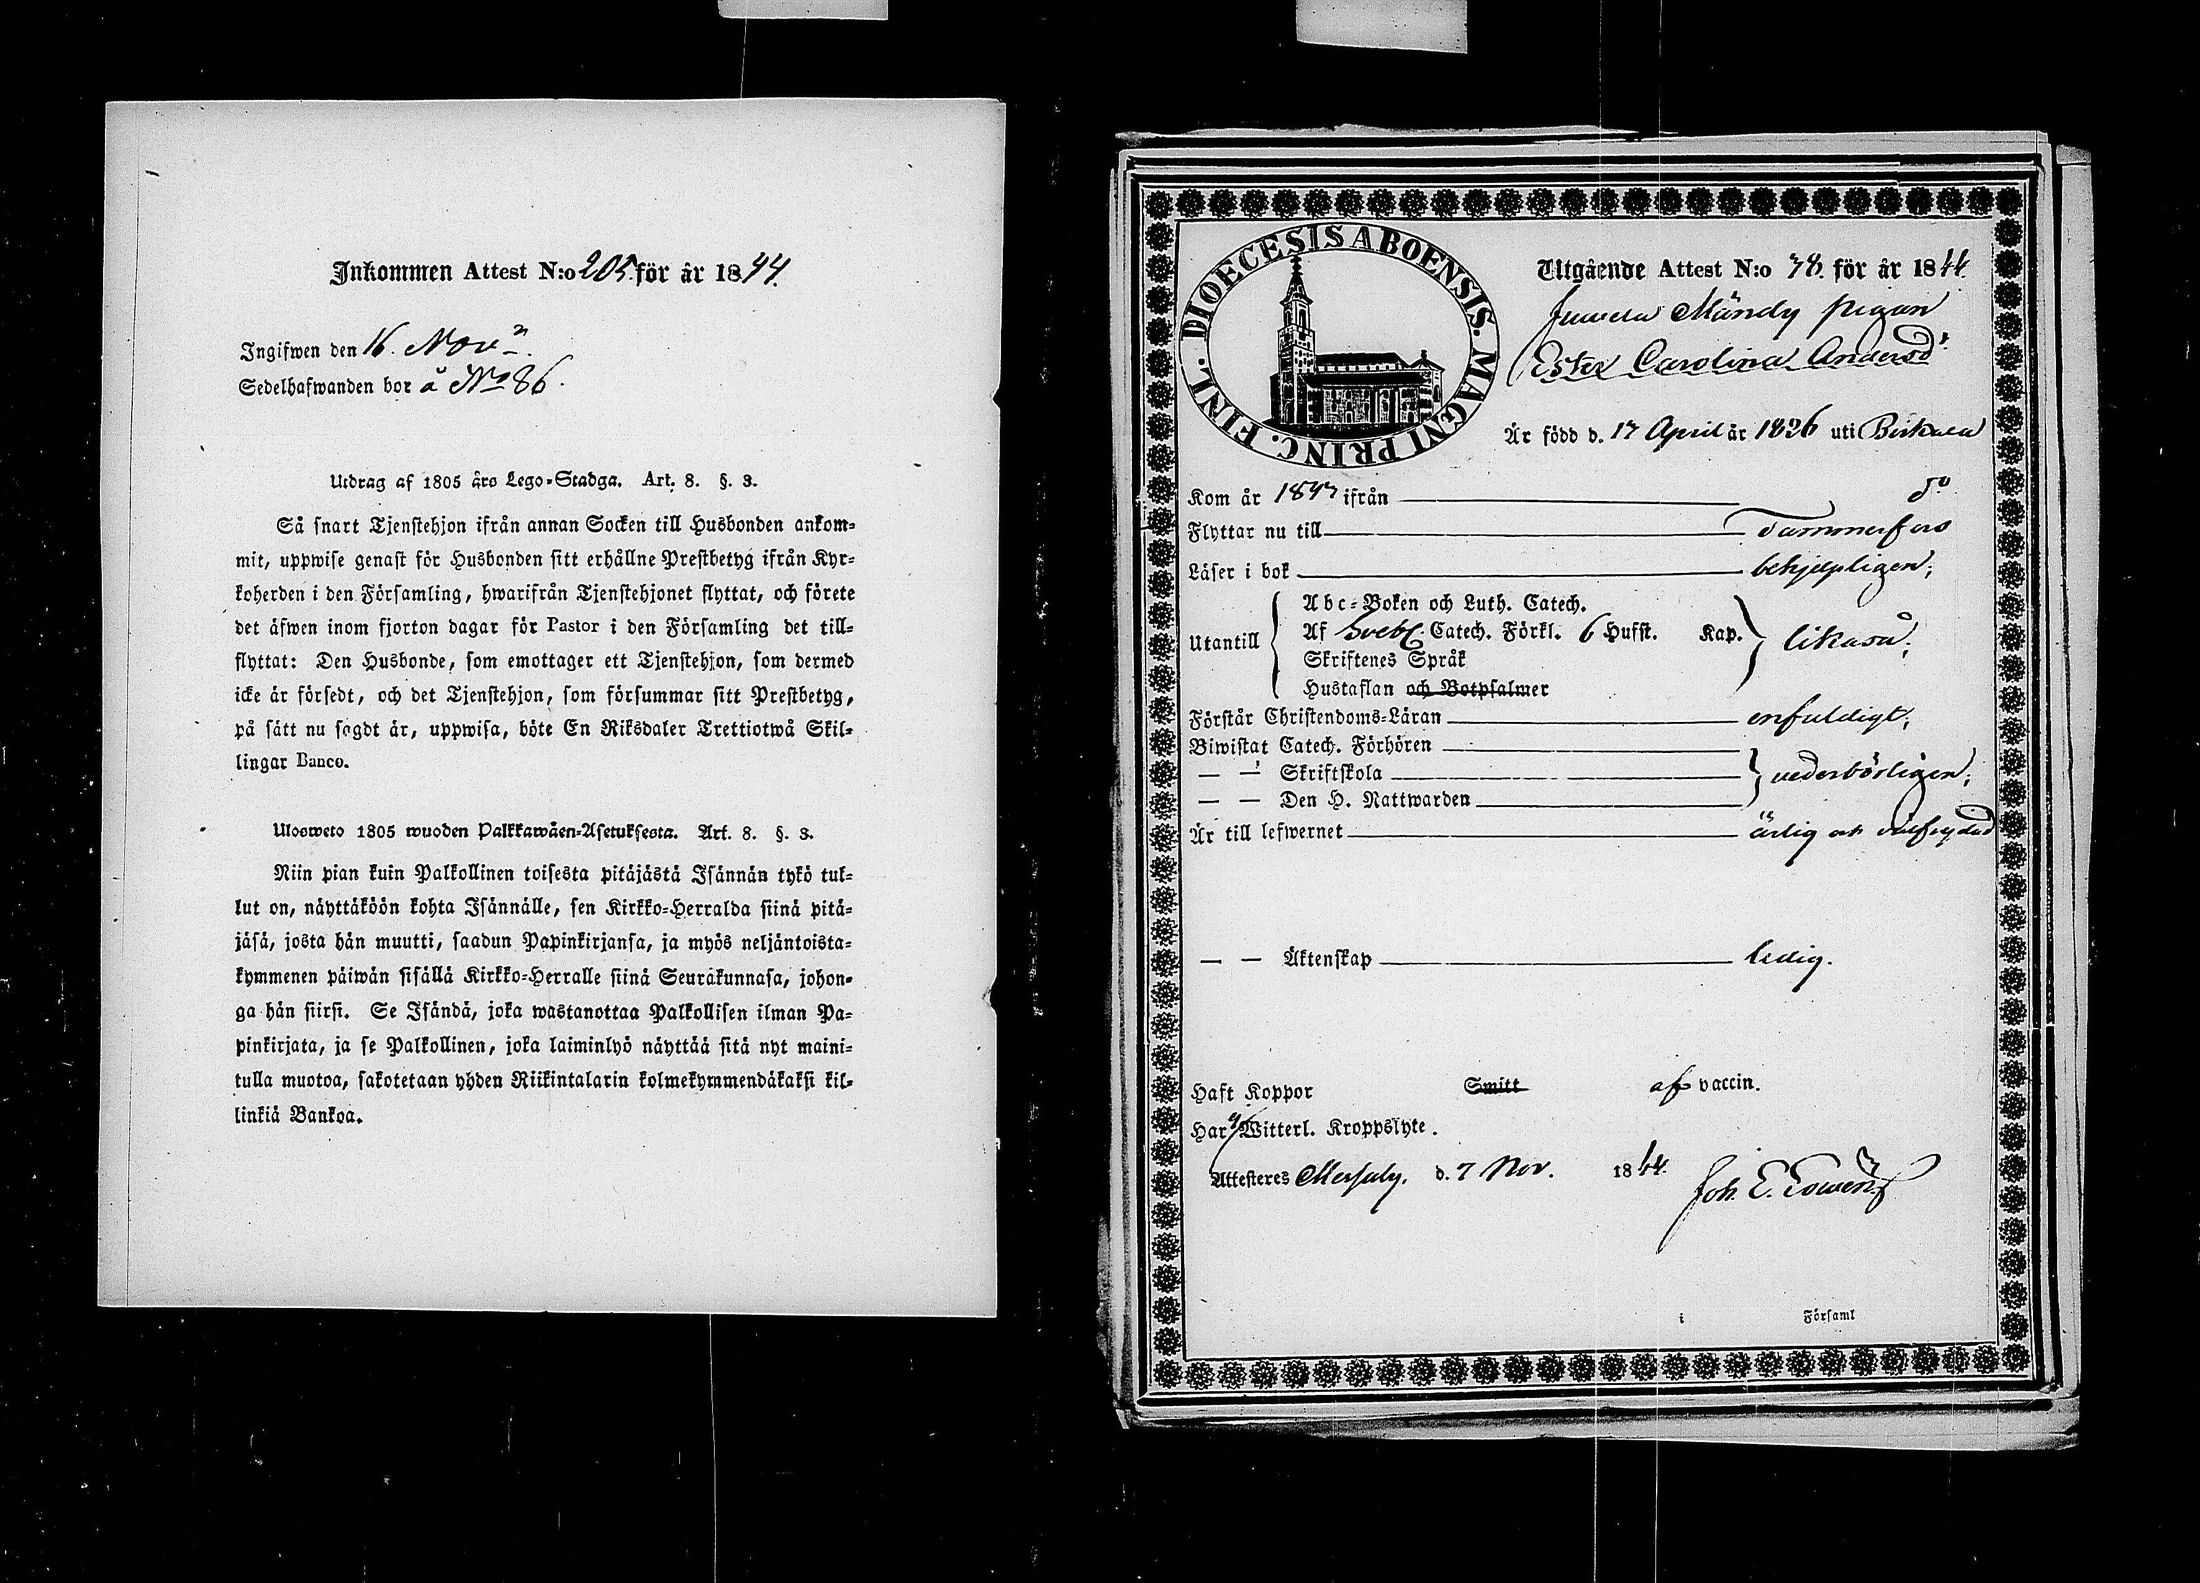 Inkommen Attest N:o 205 för år 1844.
Ingifwen den 16. Nov.
Sedelhafwanden bor å No 86.
Utdrag af 1805 års Lego-Stadga. Art. 8. §. 3.
Så snart Tjenstehjon ifrån annan Socken till Husbonden ankom-
mit, uppwise genast för Husbonden sitt erhållne Prestbetyg ifrån Kyr-
koherden i den Församling, hwarifrån Tjenstehjonet flyttat, och förete
det äfwen inom fjorton dagar för Pastor i den Församling det till-
flyttat: Den Husbonde, som emottager ett Tjenstehjon, som dermed
icke är försedt, och det Tjenstehjon, som försummar sitt Prestbetyg,
på sätt nu sagdt är, uppwisa, böte En Riksdaler Trettiotwå Skil-
lingar Banco.
Ulosweto 1805 wuoden Palkkawäen-Asetuksesta. Art. 8. §. 3.
Niin pian kuin Palkollinen toisesta pitäjästä Isännän tykö tul-
lut on, näyttäköön kohta Isännälle, sen Kirkko-Herralda siinä pitä-
jäsä, josta hän muutti, saadun Papinkirjansa, ja myös neljäntoista-
kymmenen päiwän sisällä Kirkko-Herralle siinä Seurakunnasa, johon-
ga hän siirsi. Se Isändä, joka wastanottaa Palkollisen ilman Pa-
pinkirjata, ja se Palkollinen, joka laiminlyö näyttää sitä nyt maini-
tulla muotoa, sakotetaan yhden Riikintalarin kolmekymmendäkaksi kil-
linkiä Bankoa.
DIOECESIS ABOENSIS. MAGNI PRINC. FINL.
Utgående Attest N:o 78. för år 1844.
Juvela Mändy pigan
Ester Carolina Andersd:r
Är född d. 17 April år 1826 uti Birkala
Kom år 1843 ifrån d:o
Flyttar nu till Tammerfors
Läser i bok behjelpligen;
Abc-Boken och Luth. Catech.
Utantill Af Svebel. Catech. Förkl. 6 Hufst. Kap. likaså;
Skriftenes Språk
Hustaflan och Botpsalmer
Förstår Christendoms-Läran enfuldigt;
Biwistat Catech. Förhören
— — Skriftskola vederbörligen;
— — Den H. Nattwarden
Är till lefwernet ärlig och välfrejdad
— — Äktenskap ledig.
Haft Koppor Smitt af vaccin.
Har Witterl. Kroppslyte.
Attesteres Messuby. d. 7 Nov. 1844.
Joh. E.
i Församl